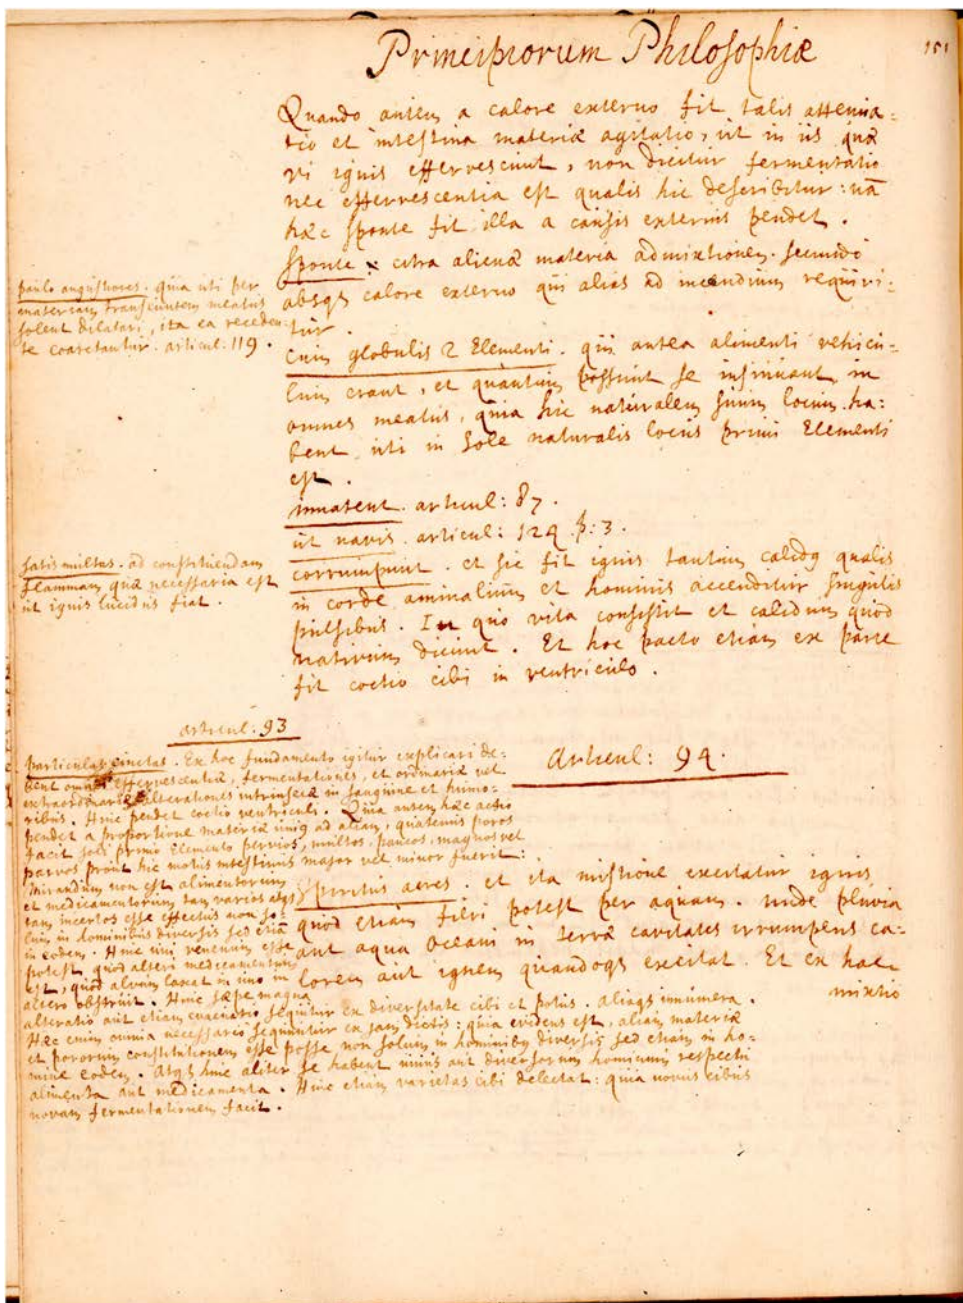 Principiorum Philosophiæ
151
Quando autem a calore externo fit talis attenua=
tio et intestina materiæ agitatio, ut in iis quæ
vi ignis effervescunt, non dicitur fermentatio
nec effervescentia est qualis hic describitur: nã
hæc sponte fit illa a causis externis pendet.
sponte: citra alienæ materia admixtionem. secundo
absq3 calore externo qui alias ad incendium requiri=
tur.
Cum globulis 2 Elementi. qui antea alimenti vehicu=
lum erant, et quantum possunt se insinuant in
omnes meatus, quia hic naturalem suum locum ha:
bent, uti in sole naturalis locus primi Elementi
est.
innatent. articul: 87.
ut navis. articul: 124. p: 3.
corrumpunt. et sic fit ignis tantum calidq qualis
in corde animalium et hominis accenditur singulis
pulsibus. In quo vita consistit et calidum quod
nativum dicunt. Et hoc pacto etiam ex parte
fit coctio cibi in ventriculo.
paulo angustiores. quia uti per
materiam transeuntem meatus
solent dilatari, ita ea receden=
te coarctantur. articul: 119.
satis multas. ad constituendam
flammam, quæ necessaria est
ut ignis lucidus fiat.
articul: 93
particulas cinctas. Ex hoc fundamento igitur explicari de=
bent omnes effervescentiæ, fermentationes, et ordinariæ vel
extraordinariæ alterationes intrinsecæ in sanguine et humo=
ribus. Hinc pendet coctio ventriculi. Quia autem hæc actio
pendet a proportione materiæ uniq ad aliam, quatenus poros
facit soli primo Elemento pervios, multos, paucos, magnos vel
parvos prout hic motus intestinus major vel minor fuerit:
mirandum non est alimentorum
et medicamentorum tam varios atq3
tam incertos esse effectus non so=
lum in hominibus diversis sed etiã
in eodem. Hinc uni venenum esse
potest, quod alteri medicamentum
est, quod alvum laxat in uno in
altero obstruit. Hinc sæpe magna
alteratio aut etiam evacuatio sequitur ex diversitate cibi et potus. aliaq3 innumera.
Hæc enim omnia necessario sequuntur ex jam dictis: quia evidens est, aliam materiæ
et pororum constitutionem esse posse non solum in hominibq diversis sed etiam in ho=
mine eodem. Atq3 hinc aliter se habent unius aut diversorum hominum respectu
alimenta aut medicamenta. Hinc etiam varietas cibi delectat: quia novus cibus
novam fermentationem facit.
Articul: 94.
Spiritus acres. et ita mistione excitatur ignis
quod etiam fieri potest per aquam. unde pluvia
aut aqua Oceani in terræ cavitates irrumpens ca=
lorem aut ignem quandoq3 excitat. Et ex hac
mixtio